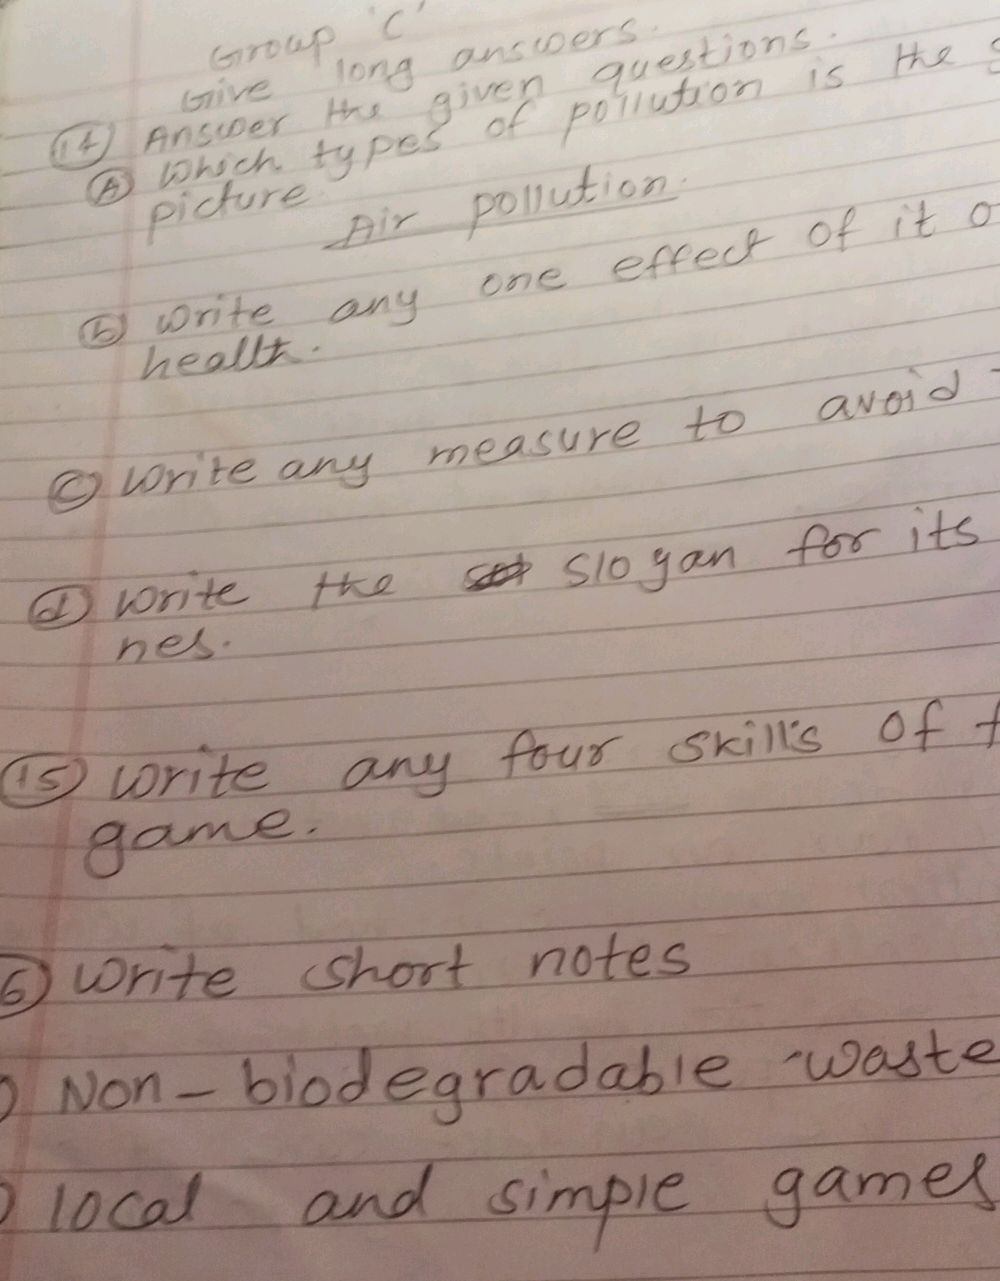 Group 'C'
Give long answers.
14 Answer the given questions.
A Which types of pollution is the
picture
Air pollution.
b write any one effect of it
health.
C write any measure to avoid
d write the slogan for its
nes.
15 write any four skill's of
game.
6 write short notes
Non-biodegradable waste
local and simple games